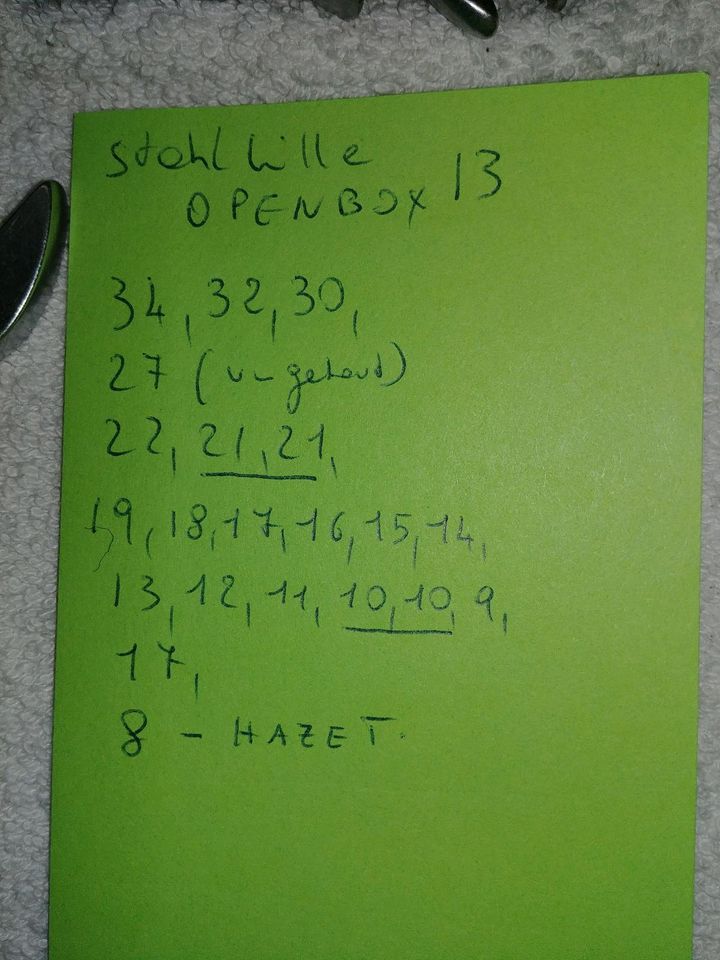 Stahlwille
OPENBOX 13
34, 32, 30,
27 (
22, 21, 21,
19, 18, 17, 16, 15, 14,
13, 12, 11, 10, 10, 9,
17,
8 - HAZET.